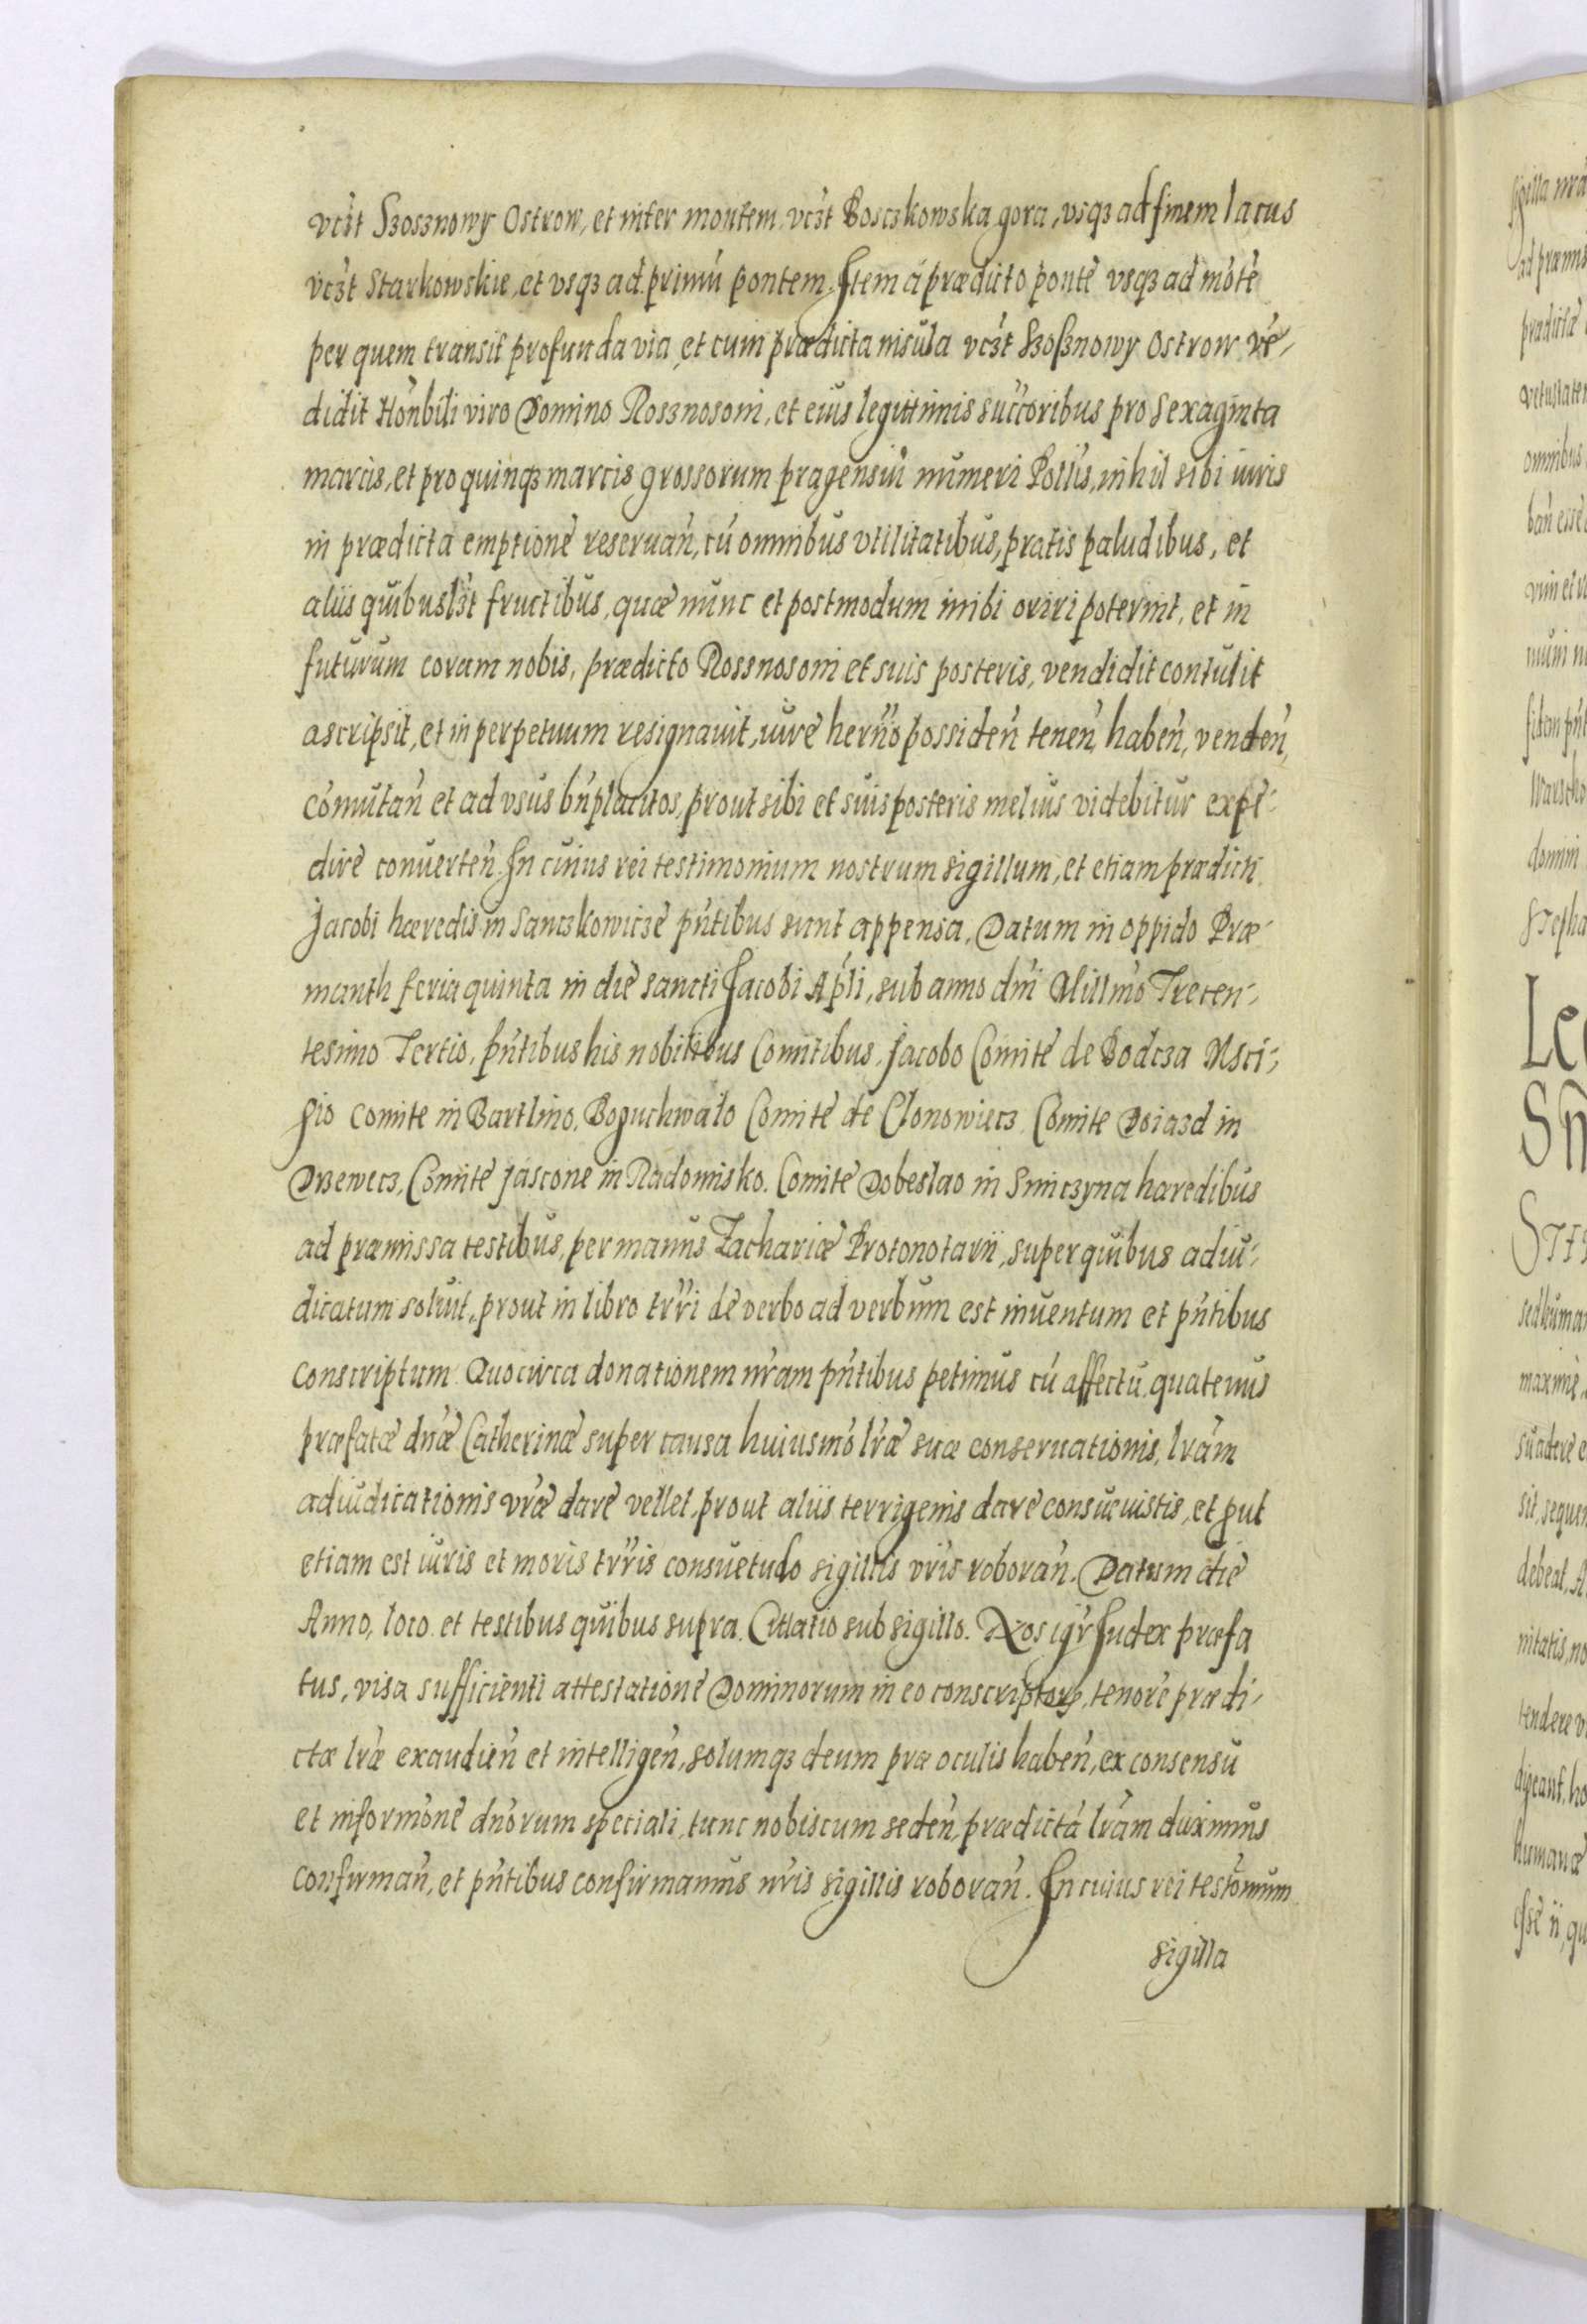 vczt Szosznowy Ostrow, et inter montem vczt Bosczkowska gora, vsqз ad finem lacus
vczt Starkowskie, et vsqз ad primū pontem. Item á prædicto ponte vsqз ad mōte
per quem transit profunda via, et cum prædicta insula vczt Szoſznowy Ostrow ve-
didit Honbili viro Domino Rosznosoni, et eius legittimis succoribus pro sexaginta
marcis, et pro quinqз marcis grossorum pragensiū numeri Pollis, nihil sibi iuris
in prædicta emptione reseruan̄, cū omnibus vtilitatibus, pratis paludibus, et
aliis quibuslзt fructibus, quæ nunc et postmodum inibi oriri poterint, et in
futurum coram nobis, prædicto Rossnosoni et suis posteris, vendidit contulit
ascripsit, et in perpetuum resignauit, iure hern̄o possiden̄ tenen̄, haben̄, venden̄,
cōmutan̄ et ad vsus bn̄placitos, prout sibi et suis posteris melius videbitur expe-
dire conuerten̄. In cuius rei testimonium nostrum sigillum, et etiam prædicti
Jacobi hæredis in Sanczkowicze pn̄tibus sunt appensa. Datum in oppido Præ-
manth feria quinta in die sancti Jacobi Apli, sub anno dn̄i Millmo Trecen-
tesimo Tertio, pn̄tibus his nobilibus Comitibus, Jacobo Comite de Bodcza Msci-
gio Comite in Bartlino, Boguchwało Comite de Clonowiecz Comite Doiazd in
Drzewecz, Comite Jascone in Radomisko. Comite Dobeslao in Sinczyna hæredibus
ad præmissa testibus, per manus Zachariæ Protonotarii, super quibus adiu-
dicatum soluit, prout in libro trr̄i de verbo ad verbum est inuentum et pn̄tibus
conscriptum. Quocirca donationem nr̄am pn̄tibus petimus cū affectu, quatenus
præfatæ dn̄æ Catherinæ super causa huiusmo lr̄æ suæ conseruationis, lr̄am
adiudicationis vr̄æ dare vellet, prout aliis terrigenis dare consueuistis, et put
etiam est iuris et moris trr̄is consuetudo sigillis vr̄is roboran̄. Datum die
Anno, loco et testibus quibus supra. Citlatio sub sigillo. Nos igr̄ Judex præfa
tus, visa sufficienti attestatione Dominorum in eo conscriptorꝝ, tenore prædi-
ctæ lr̄æ exaudien̄ et intelligen̄, solumqз deum præ oculis haben̄, ex consensu
et informōne dn̄orum speciali, tunc nobiscum seden̄, prædictā lr̄am duximus
confirman̄, et pn̄tibus confirmamus nr̄is sigillis roboran̄. In cuius rei testōnium
sigilla